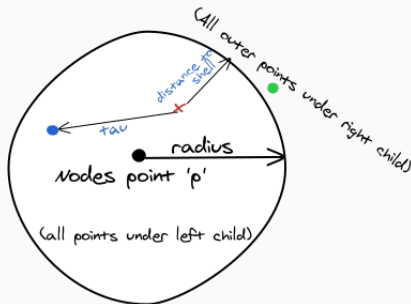 (All outer points under right child)
distance to
shell
tau
radius
Nodes point 'p'
(all points under left child)